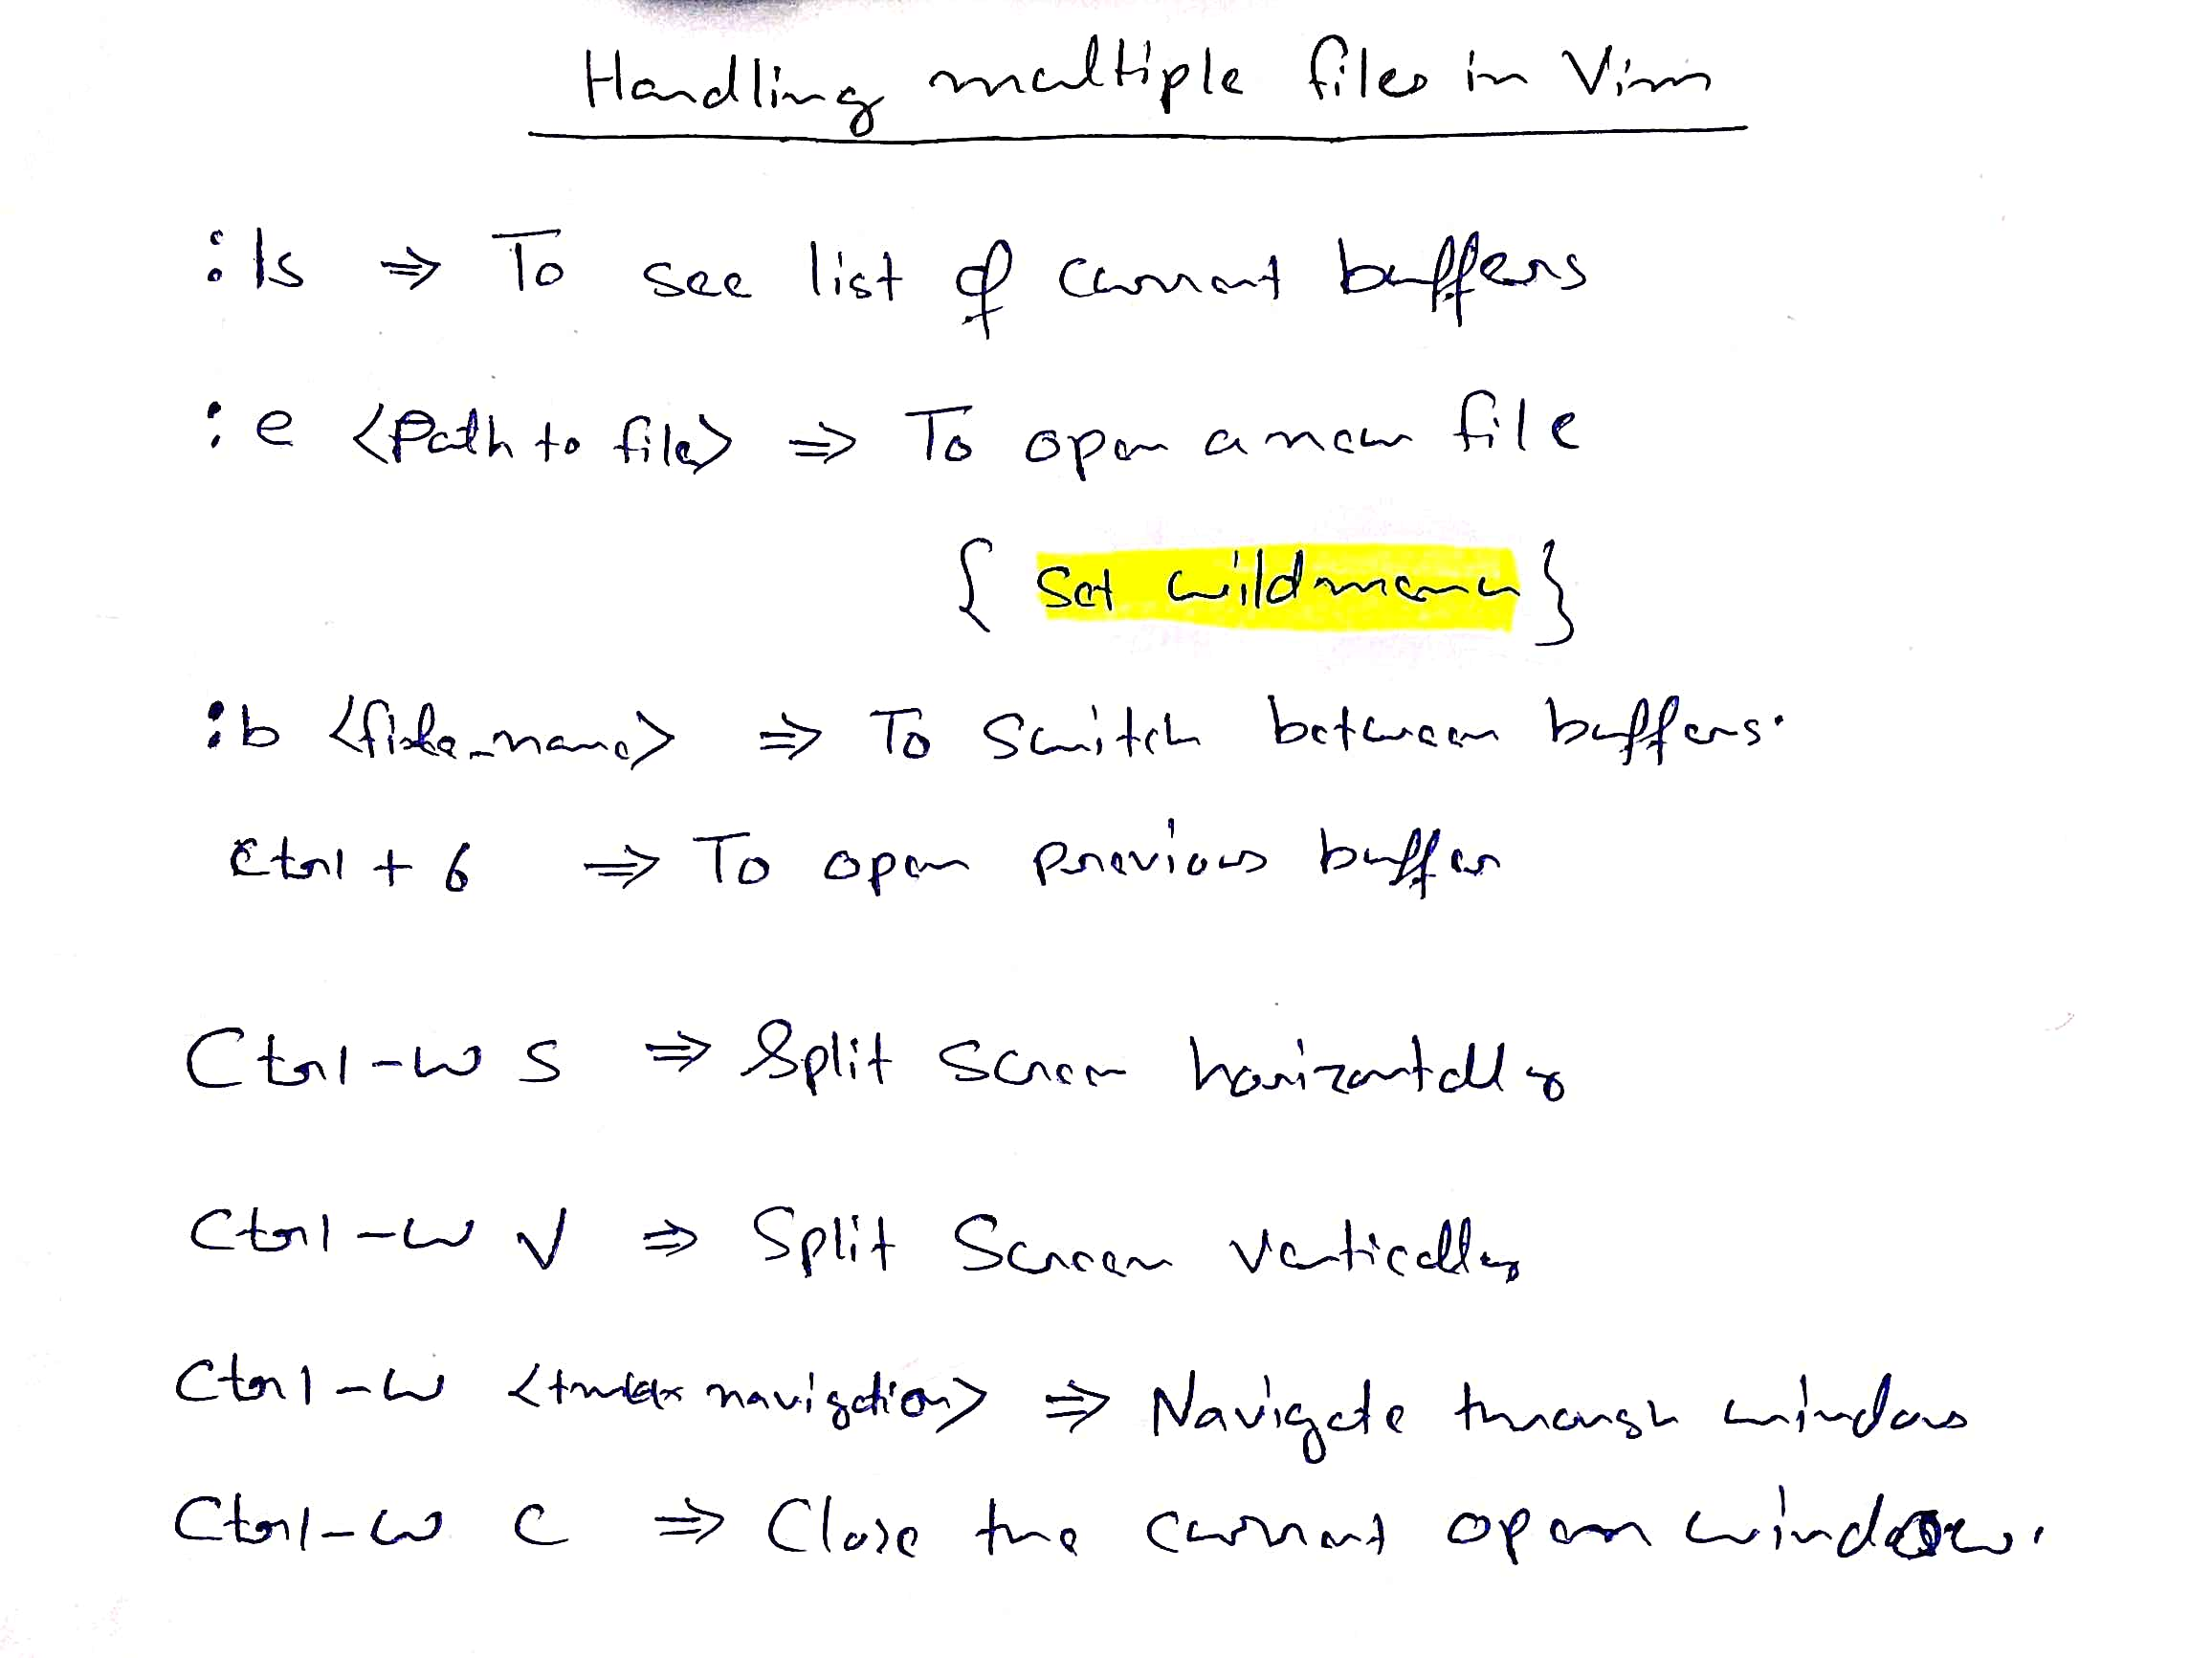 Handling multiple files in Vim
:ls ⇒ To see list of current buffers
:e <Path to file> ⇒ To open a new file
{ Set wildmenu }
:b <file_name> ⇒ To Switch between buffers.
Ctrl + 6 ⇒ To open previous buffer
Ctrl-w s ⇒ Split Screen horizontally
Ctrl-w v ⇒ Split Screen vertically
Ctrl-w <tmux navigation> ⇒ Navigate through windows
Ctrl-w c ⇒ Close the current open window.